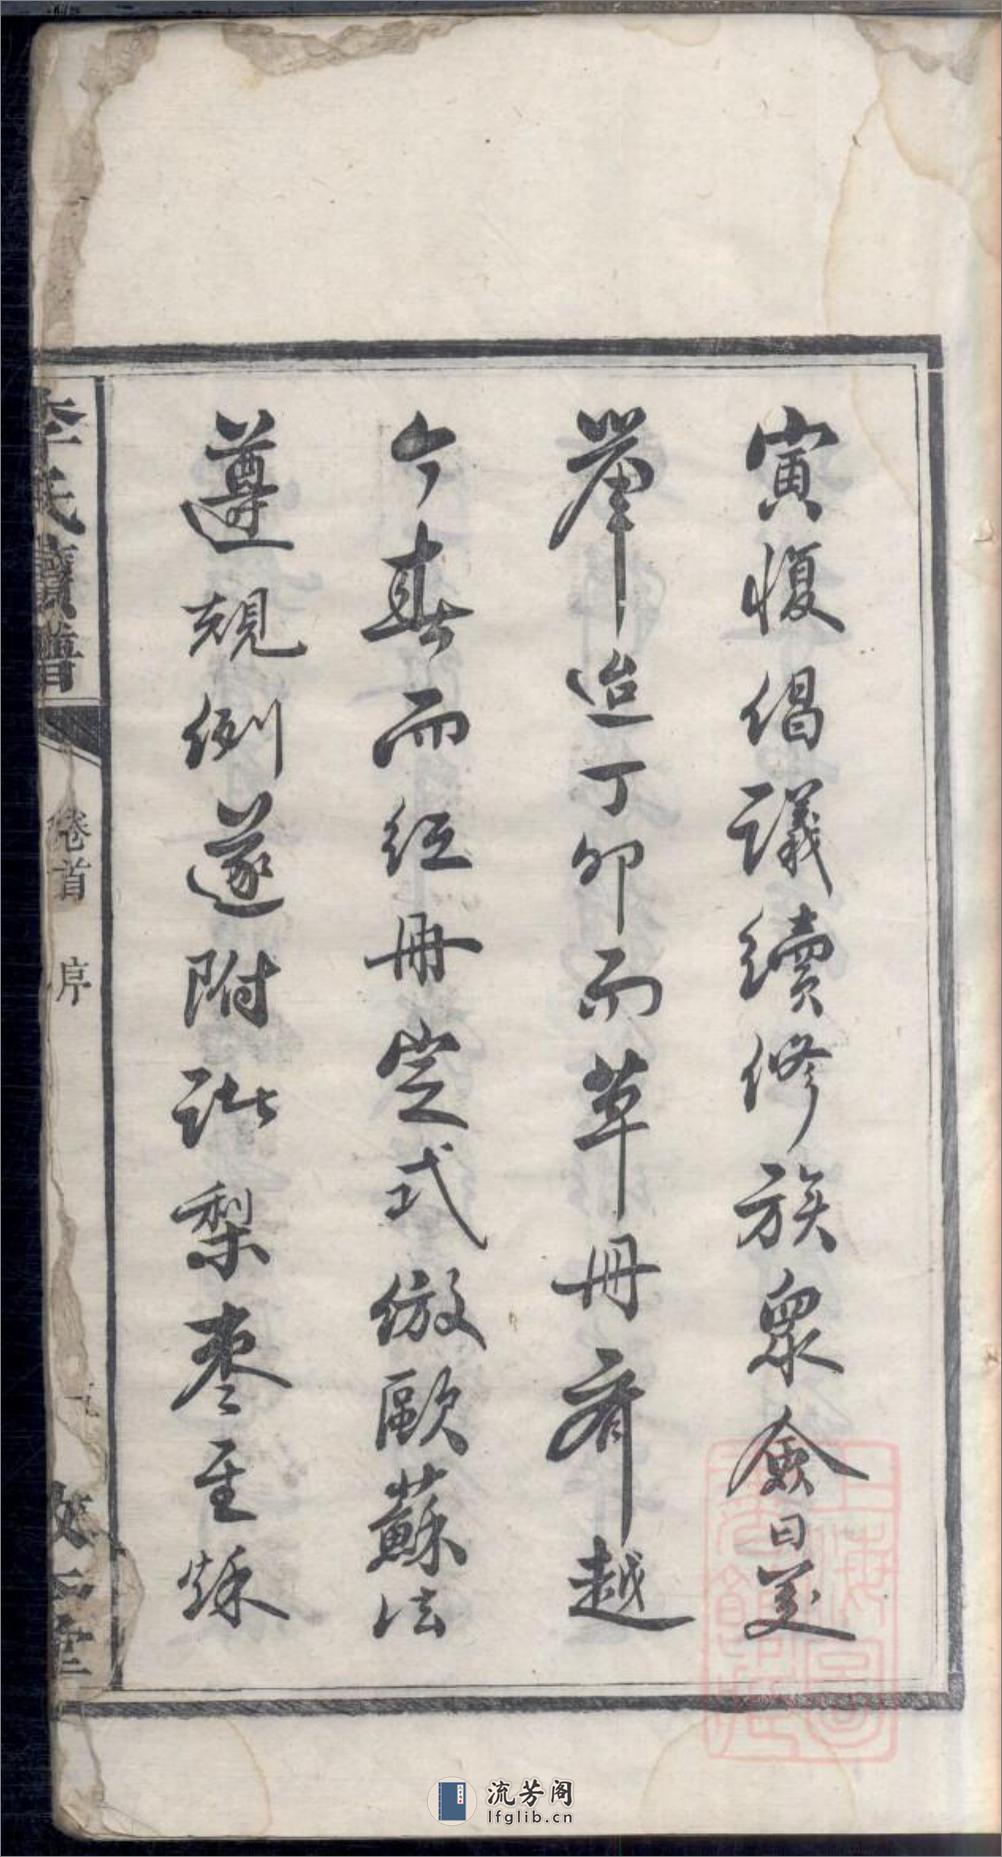 寅復倡議續修族眾僉曰美
舉迨丁卯而草冊齊越
今春而紅冊定式倣歐蘇法
遵規例遂附諸梨棗至穌
李氏續譜
卷首 序
敦 堂
流芳阁
lfglib.cn